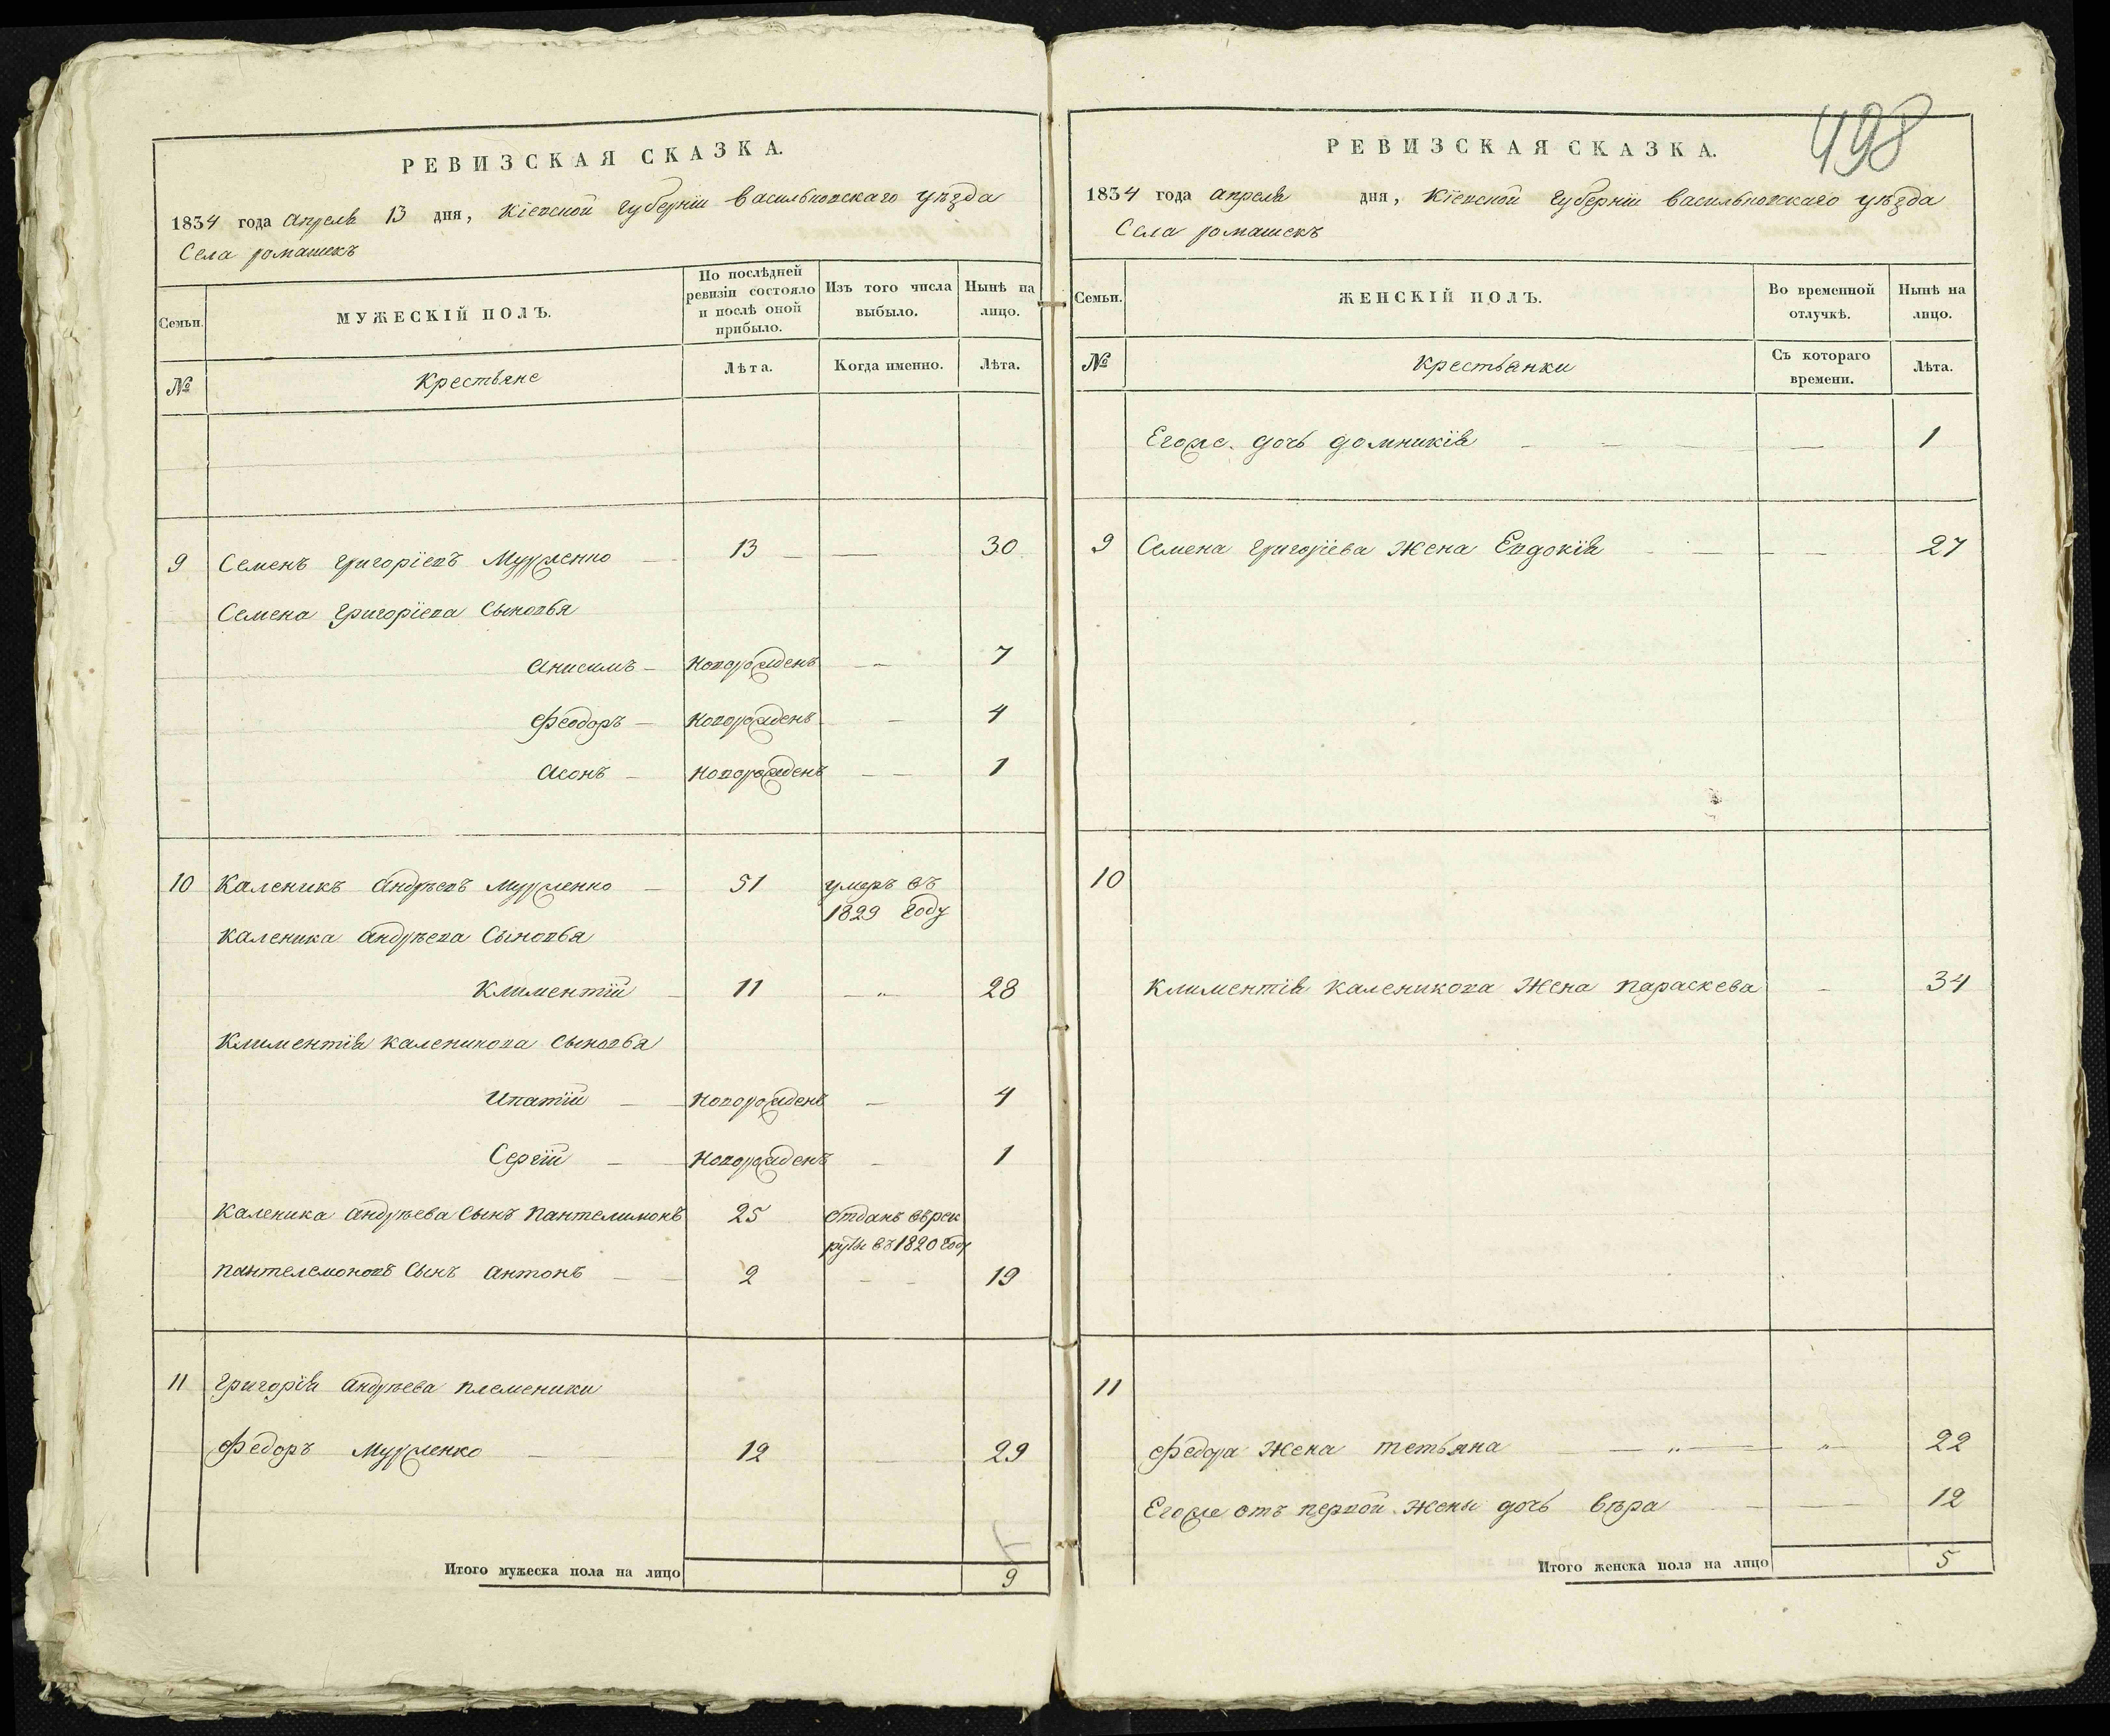 РЕВИЗСКАЯ СКАЗКА.
1834 года Апреля 13 дня, Кіевской Губерніи Васильковскаго уѣзда
Села ромашекъ
Семьи.
МУЖЕСКІЙ ПОЛЪ.
По послѣдней ревизіи состояло и послѣ оной прибыло.
Изъ того числа выбыло.
Нынѣ на лицо.
№
Крестьяне
Лѣта.
Когда именно.
Лѣта.
9 Семенъ Григоріевъ Мурженко — 13 — — 30
Семена Григоріева Сыновья
Анисимъ — новорожденъ — 7
Феодоръ — новорожденъ — 4
Асонъ — новорожденъ — — 1
10 Каленикъ Андрѣевъ Мурженко — 51 умеръ въ
1829 году
Каленика Андрѣева Сыновья
Климентій — 11 — „ — 28
Климентія Каленикова Сыновья
Ипатій — новорожденъ — 4
Сергій — новорожденъ — 1
Каленика Андрѣева Сынъ Пантелимонъ 25 отданъ въ рек
руты въ 1820 году
Пантелемоновъ Сынъ Антонъ — — 2 — — 19
11 Григорія Андрѣева племеники
Федоръ Мурженко — — 12 — 29
Итого мужеска пола на лицо 9
498
РЕВИЗСКАЯ СКАЗКА.
1834 года Апреля дня, Кіевской Губерніи Васильковскаго уѣзда
Села ромашекъ
Семьи.
ЖЕНСКІЙ ПОЛЪ.
Во временной отлучкѣ.
Нынѣ на лицо.
№
Крестьянки
Съ котораго времени.
Лѣта.
Егоже дочь Домникія — — — — 1
9 Семена Григоріева жена Евдокія — — — 27
10
Климентія Каленикова жена Параскева — 34
11
Федора жена Тетьяна — „ — „ — 22
Егоже отъ первой жены дочь Вѣра — — 12
Итого женска пола на лицо 5